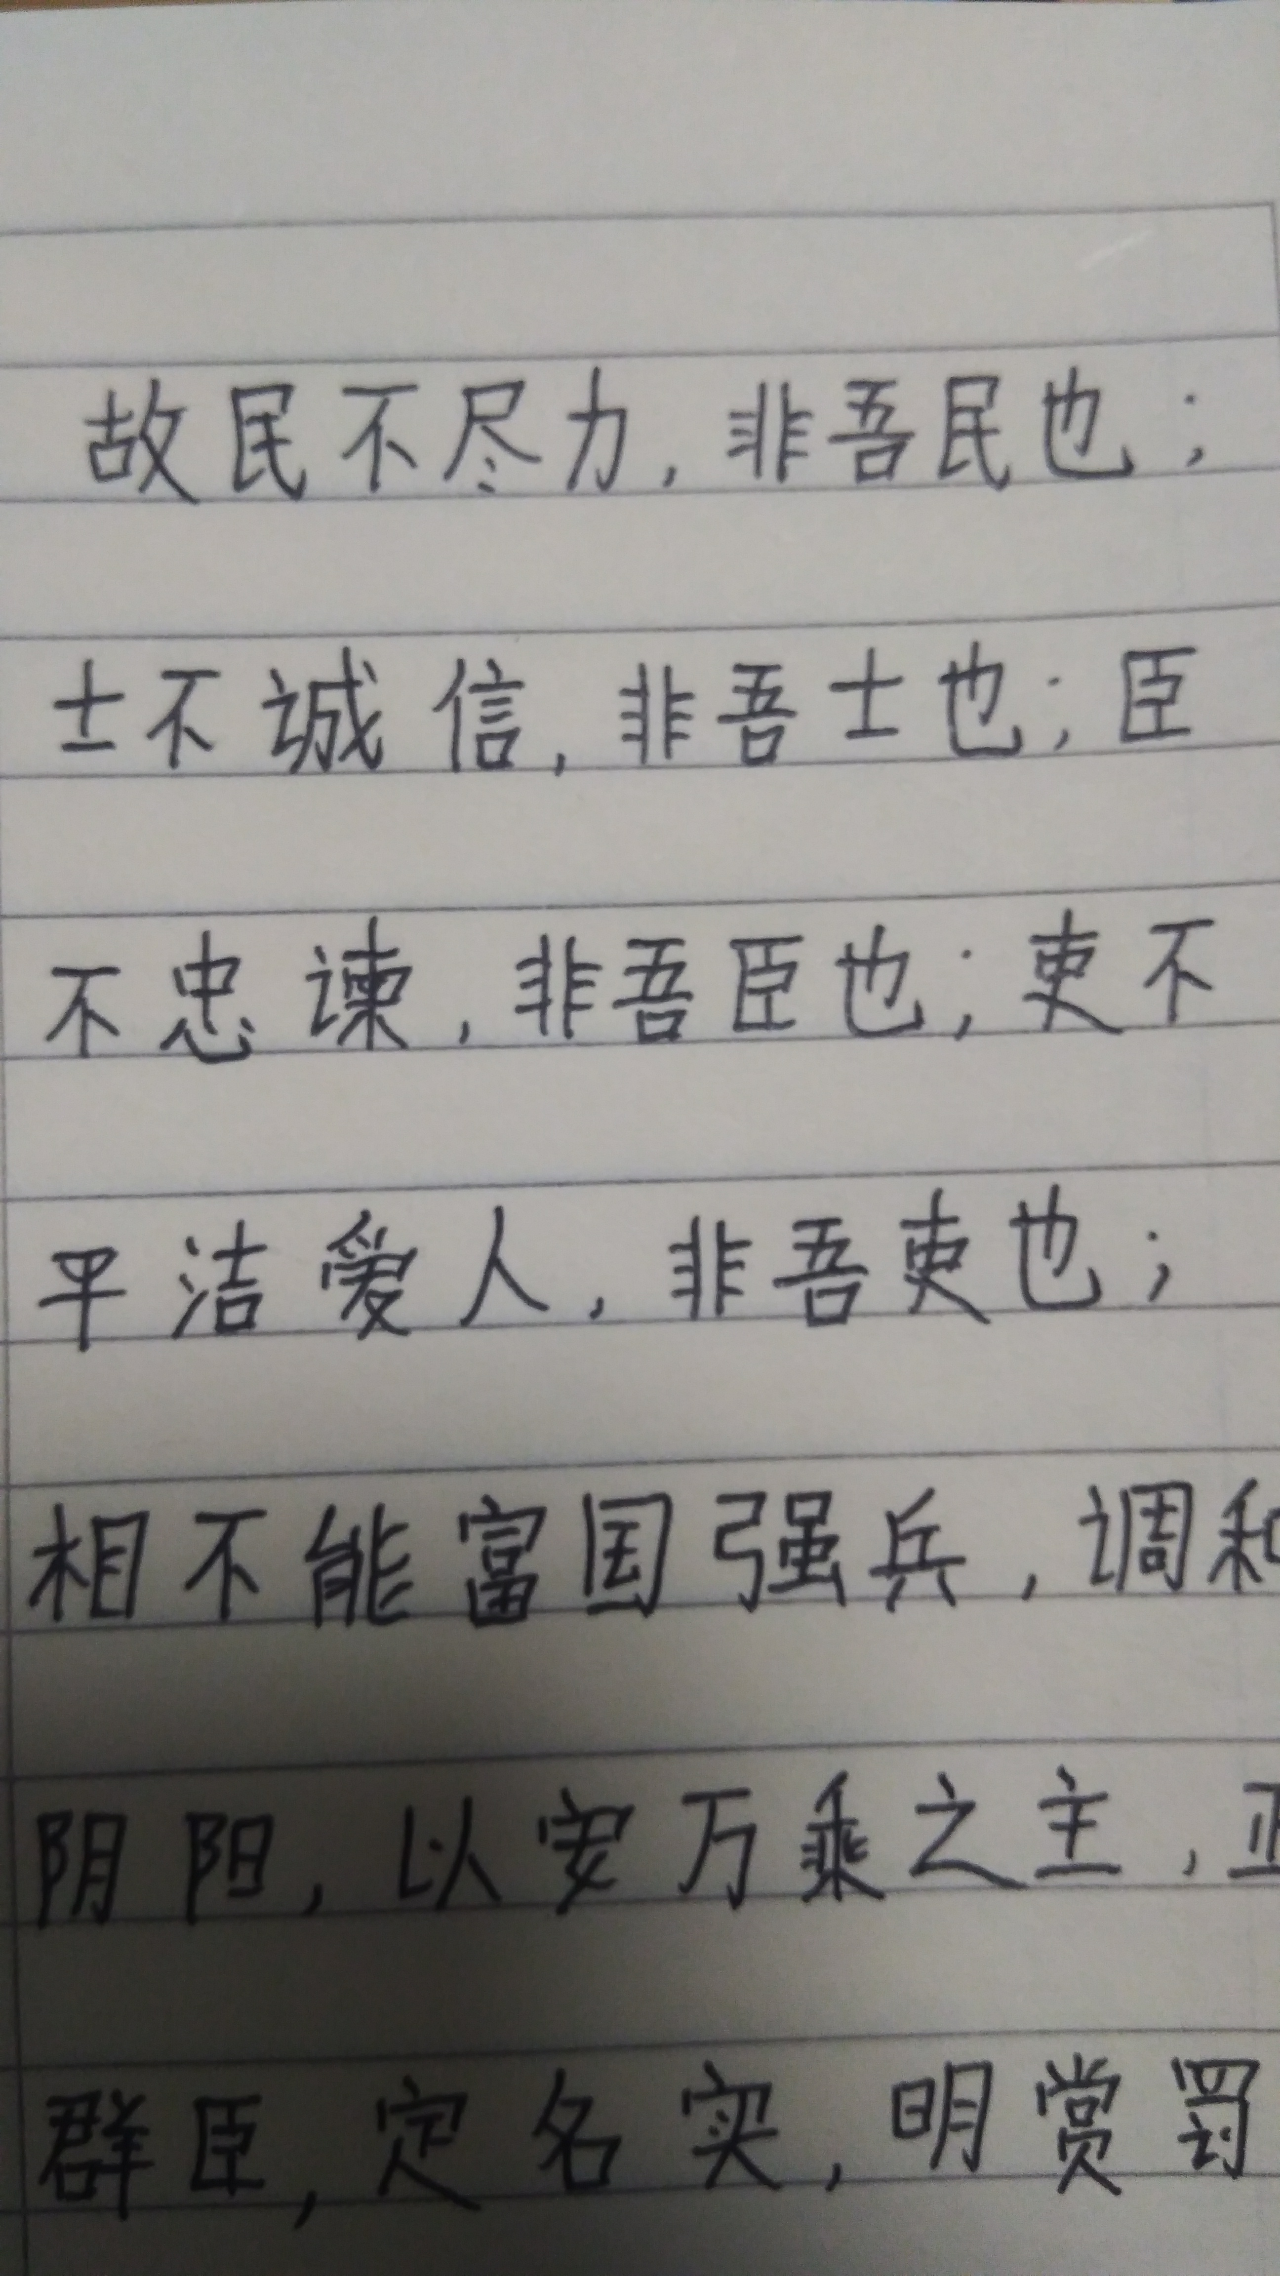 故民不尽力，非吾民也；
士不诚信，非吾士也；臣
不忠谏，非吾臣也；吏不
平洁爱人，非吾吏也；
相不能富国强兵，调和
阴阳，以安万乘之主，正
群臣，定名实，明赏罚